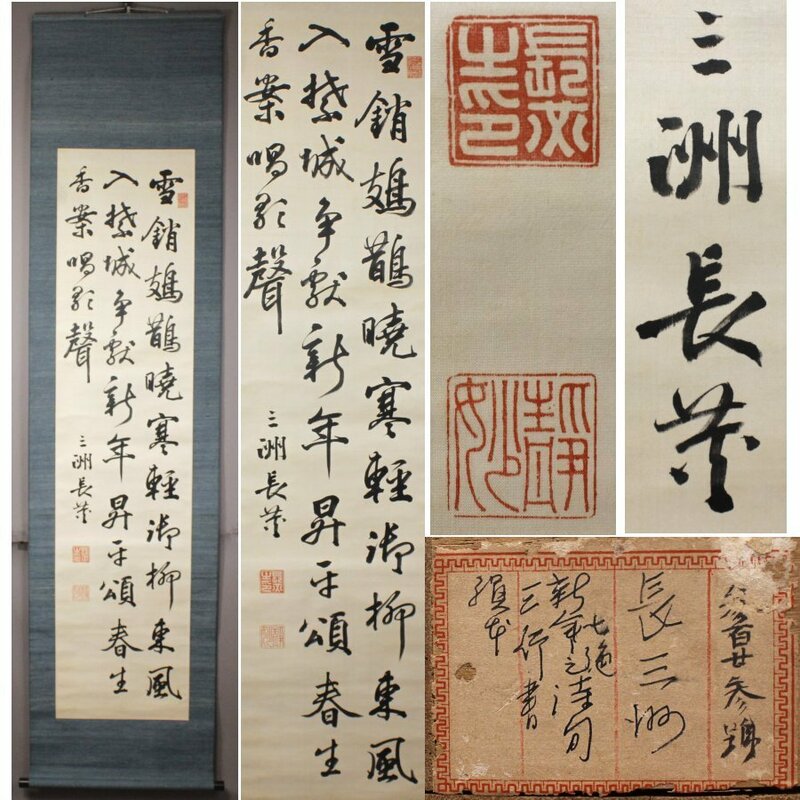 雪銷鳷鵲曉寒輕御柳東風
入禁城争獻新年昇平頌春生
香案唱歌聲
三洲長炗
雪銷鳷鵲曉寒輕御柳東風
入禁城争獻新年昇平頌春生
香案唱歌聲
三洲長炗
長炗之印
三洲長炗
参百廿参號
長三洲
七絶
新年之佳句
三行書
絹本